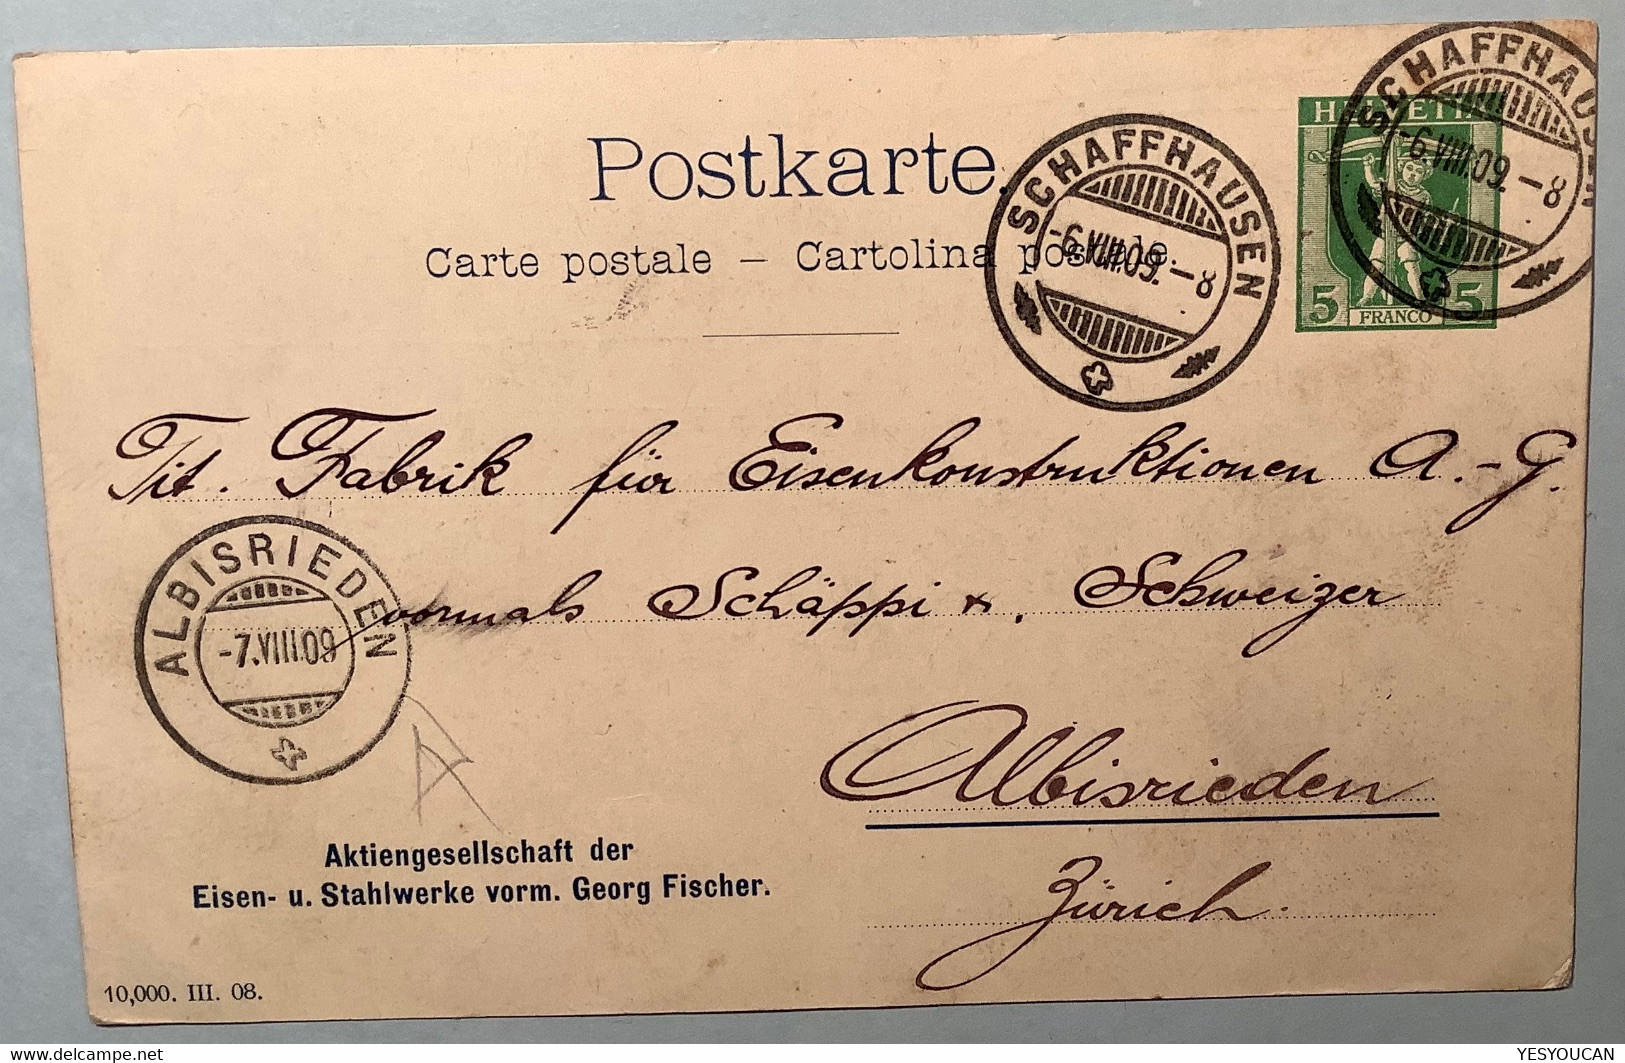 Postkarte.
Carte postale – Cartolina postale.
SCHAFFHAUSEN
-6.VIII.09.-8
SCHAFFHAUSEN
-6.VIII.09.-8
HELVETIA
5 FRANCO 5
Tit. Fabrik für Eisenkonstruktionen A.-G.
vormals Schäppi &. Schweizer
ALBISRIEDEN
-7.VIII.09
Albisrieden
Zürich.
Aktiengesellschaft der
Eisen- u. Stahlwerke vorm. Georg Fischer.
10,000. III. 08.
YESYOUCAN